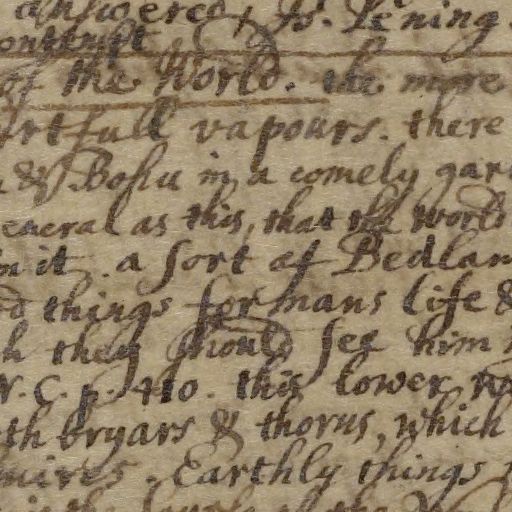 answered, Ps. Pening
contempt
of the World. the more
artfull vapours. there
& Bohu in a comely gar
eneral as this, that the World
in it. a sort of Bedlam
things for mans life &
h they should see him
W. C. p. 410. this lower
th bryars & thorns, which
mires. Earthly things